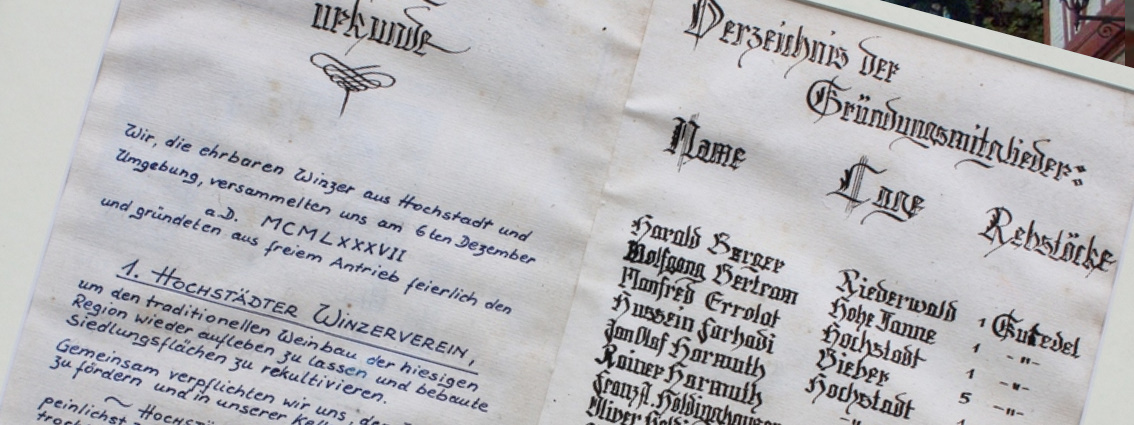 urkunde
Wir, die ehrbaren Winzer aus Hochstadt und
Umgebung, versammelten uns am 6ten Dezember
a.D. MCMLXXXVII
und gründeten aus freiem Antrieb feierlich den
1. HOCHSTÄDTER WINZERVEREIN,
um den traditionellen Weinbau der hiesigen
Region wieder aufleben zu lassen und bebaute
Siedlungsflächen zu rekultivieren.
Gemeinsam verpflichten wir uns, den
zu fördern und in unserer
~ HOCHSTÄ
peinlichst
Verzeichnis der
Gründungsmitglieder:
Name Lage Rebstöcke
Harald Berger Niederwald 1 Gutedel
Wolfgang Bertram Hohe Tanne 1 -"-
Manfred Errolat Hochstadt 1 -"-
Hussein Farhadi Bieber 5 -"-
Jan Olaf Hormuth Hochstadt
Rainer Hormuth -"-
Franz J. Holdinghausen
Oliver